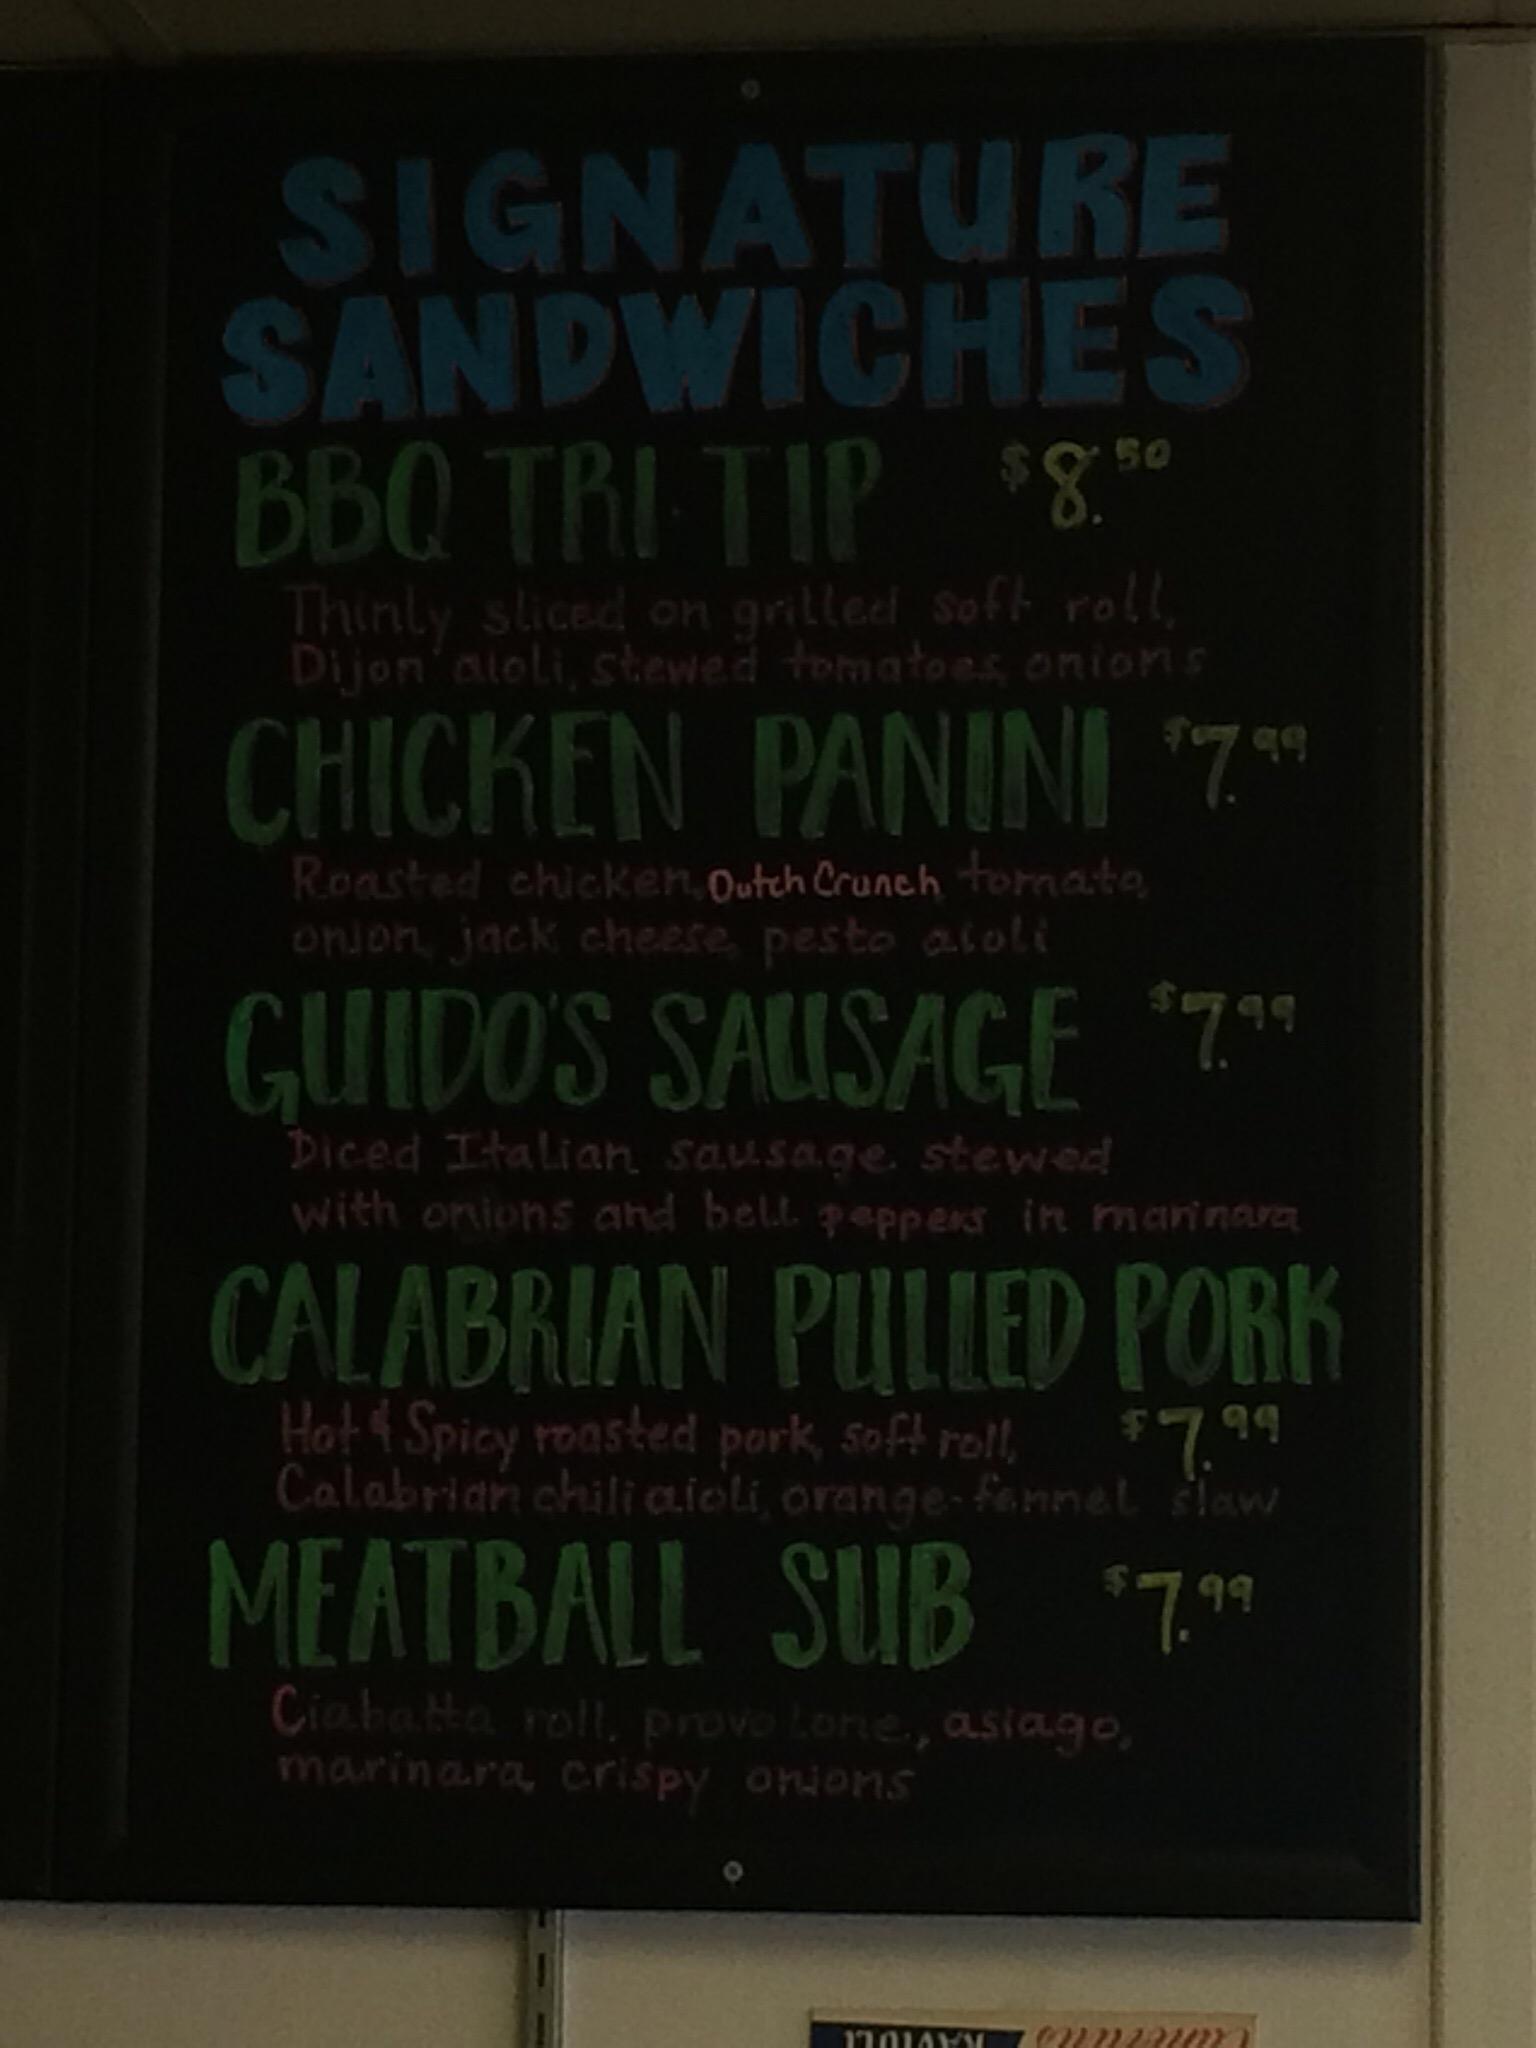 SIGNATURE
SANDWICHES
BBQ TRI TIP $8.50
Thinly sliced on grilled soft roll,
Dijon aioli, stewed tomatoes, onions
CHICKEN PANINI $7.99
Roasted chicken, Dutch Crunch, tomato,
onion, jack cheese, pesto aioli
GUIDO'S SAUSAGE $7.99
Diced Italian sausage stewed
with onions and bell peppers in marinara
CALABRIAN PULLED PORK
Hot & Spicy roasted pork, soft roll, $7.99
Calabrian chili aioli, orange-fennel slaw
MEATBALL SUB $7.99
Ciabatta roll, provolone, asiago,
marinara, crispy onions
RAVIOLI